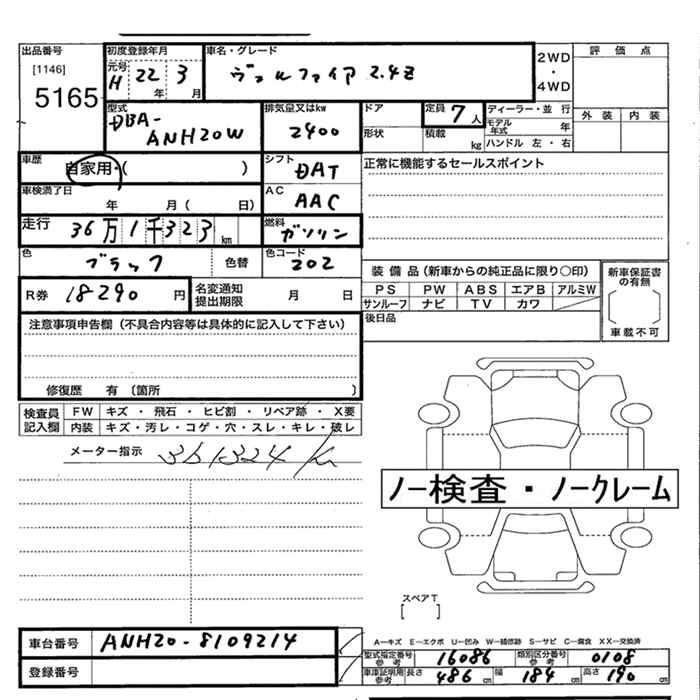 出品番号 初度登録年月 車名・グレード 2WD・4WD 評価点
[1146] 元号 H 22年 3月 ヴェルファイア 2.4Z
5165 外装 内装
型式 DBA-ANH20W 排気量又はkw 2400 ドア 形状 定員 7人 積載 kg ディーラー・並行 モデル年式 年 ハンドル 左・右
車歴 自家用・( ) シフト DAT 正常に機能するセールスポイント
車検満了日 年 月( 日) AC AAC
走行 36万1千323km 燃料 ガソリン
色 ブラック 色替 色コード 202
装備品(新車からの純正品に限り○印) 新車保証書の有無
R券 18290円 名変通知提出期限 月 日 PS PW ABS エアB アルミW
サンルーフ ナビ TV カワ
注意事項申告欄(不具合内容等は具体的に記入して下さい) 後日品 車載不可
修復歴 有〔箇所 〕
検査員記入欄 FW キズ・飛石・ヒビ割・リペア跡・X要
内装 キズ・汚レ・コゲ・穴・スレ・キレ・破レ
メーター指示 361324km
ノー検査・ノークレーム
スペアT
[ ]
A―キズ E―エクボ U―凹み W―補修跡 S―サビ C―腐食 XX―交換済
車台番号 ANH20-8109214 型式指定番号 参考 16086 類別区分番号 参考 0108
登録番号 車庫証明用 参考 長さ 486cm 幅 184cm 高さ 190cm